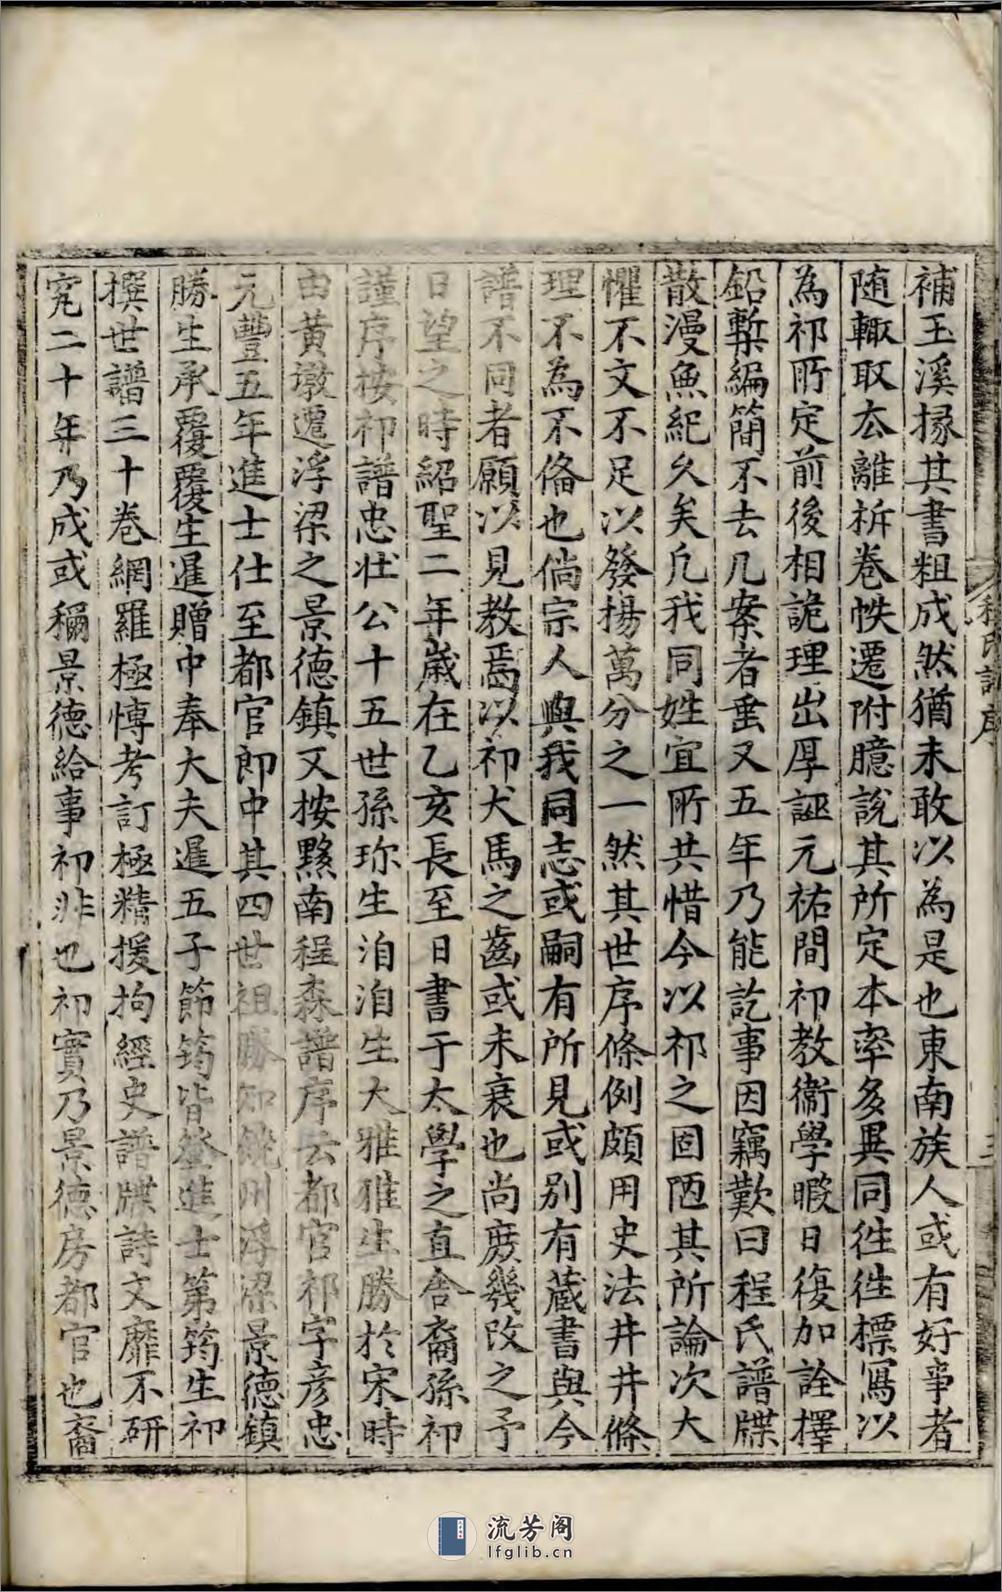 補玉溪掾其書粗成然猶未敢以為是也東南族人或有好事者
随輙取去離析卷帙遷附臆說其所定本率多異同徃徃標寫以
為祁所定前後相詭理出厚誣元祐間祁教衞學暇日復加詮擇
鉛槧編簡不去几案者垂又五年乃能訖事因竊歎曰程氏譜牒
散漫魚紀久矣凡我同姓宜所共惜今以祁之固陋其所論次大
懼不文不足以發揚萬分之一然其世序條例頗用史法井井條
理不為不俻也倘宗人與我同志或嗣有所見或别有蔵書與今
譜不同者願以見教焉以祁犬馬之齒或未衰也尚庶幾改之予
日望之時紹聖二年歲在乙亥長至日書于太學之直舎裔孫祁
謹序按祁譜忠壯公十五世孫珎生洎洎生大雅雅生勝於宋時
由黄墩遷浮梁之景德鎮又按黟南程森譜序云都官祁字彦忠
元豐五年進士仕至都官郎中其四世祖勝知饒州浮梁景德鎮
勝生承覆覆生暹贈中奉大夫暹五子節筠皆登進士第筠生祁
撰世譜三十卷網羅極愽考訂極精援拘經史譜牒詩文靡不研
究二十年乃成或稱景德給事祁非也祁實乃景德房都官也裔
程氏譜序
三
流芳阁
lfglib.cn